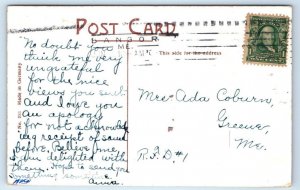 POST CARD
BANGOR
ME.
This side for the address
Made in Germany
No doubt you
think me very
ungrateful
for the nice
views you sent
and I owe you
an apology
for not acknowled
ing receipt of same
before. Believe me
I am delighted with
them. Hope to send you
something
Anna
Mrs Ada Coburn,
Greene,
Me.
R.F.D. #1